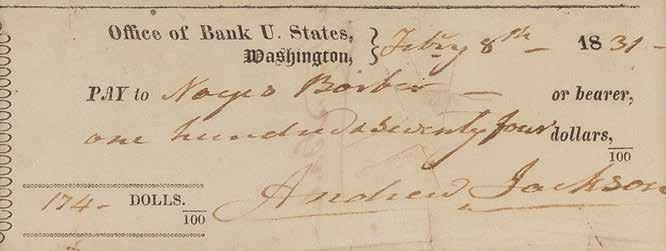 Office of Bank U. States,
Washington, } Feb'ry 8th - 1831 -
PAY to Noyes Barber - or bearer,
one hundred & seventy four dollars, /100
174 - DOLLS. /100
Andrew Jackson